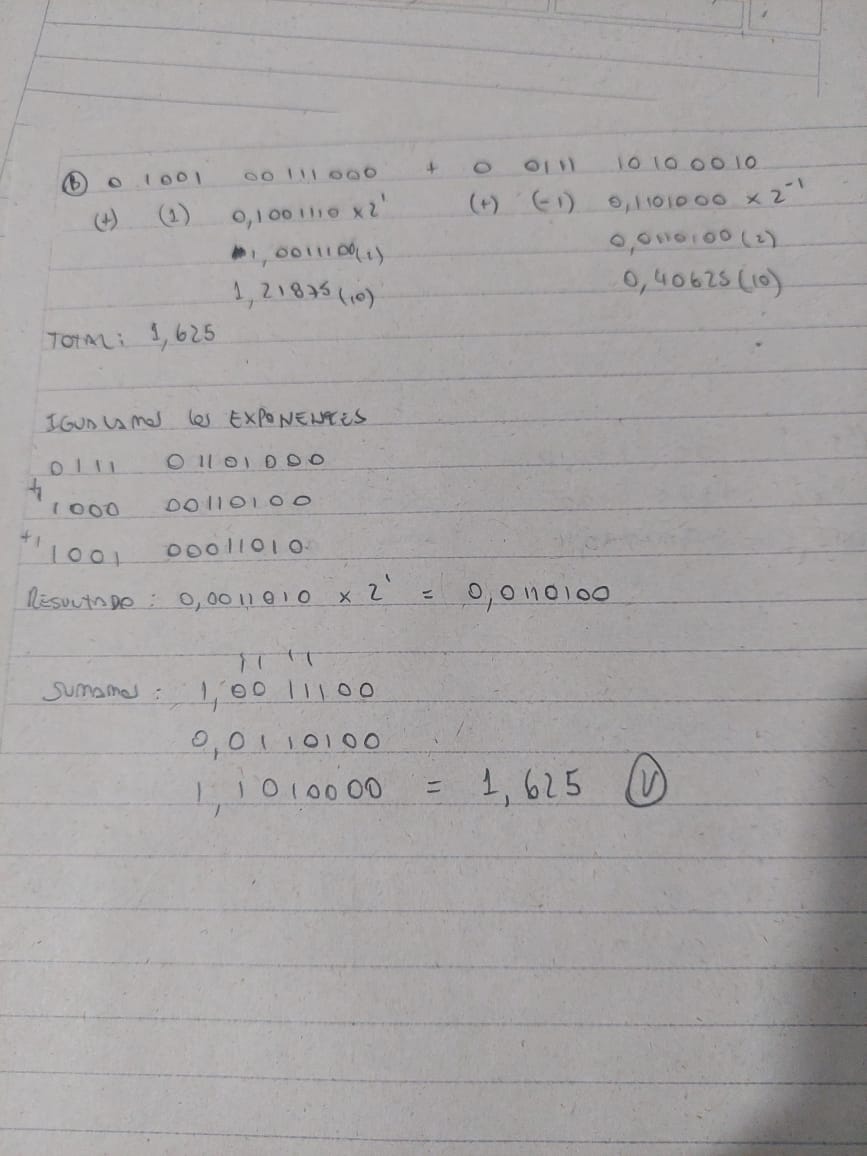 b 0 1001 00111000 + 0 0111 10100010
(+) (1) 0,1001110 x 2¹ (+) (-1) 0,1101000 x 2⁻¹
1,0011100(2) 0,0110100(2)
1,21875(10) 0,40625(10)
TOTAL: 1,625
IGUALAMOS LOS EXPONENTES
0111 01101000
+1 1000 00110100
+1 1001 00011010
RESULTADO: 0,0011010 x 2¹ = 0,0110100
1 1 1 1
SUMAMOS: 1,0011100
0,0110100
1,1010000 = 1,625 V